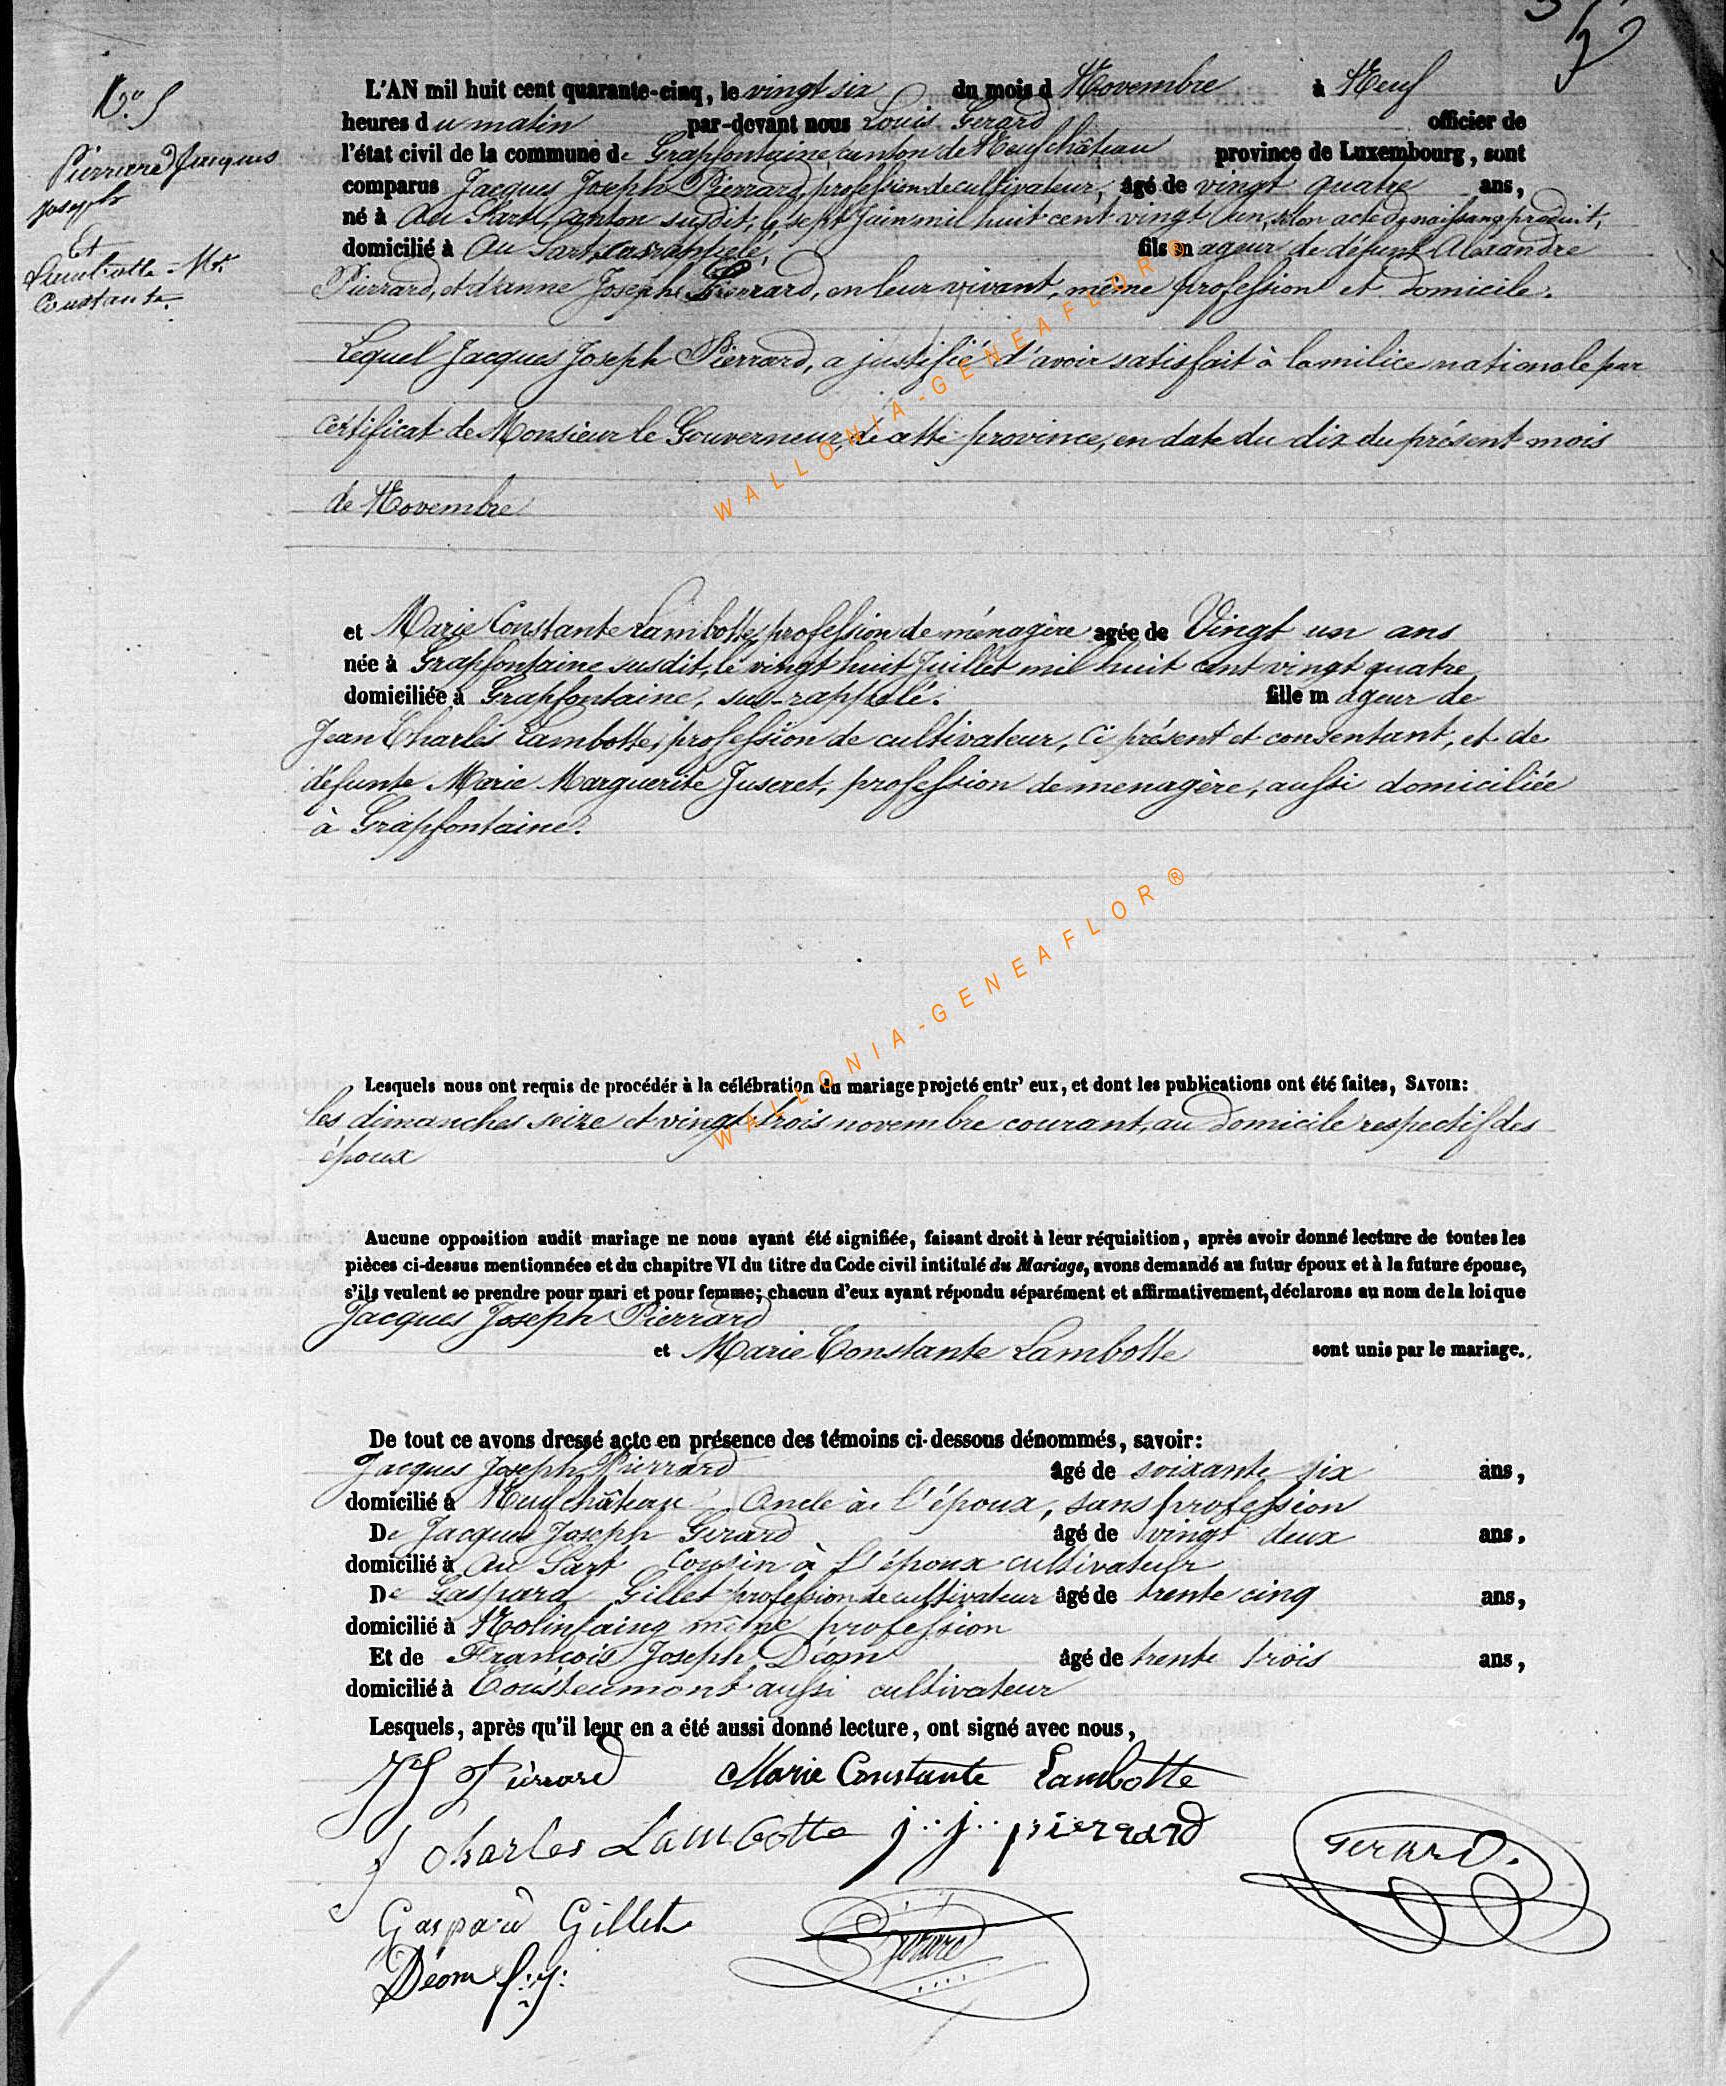 N° 5
Pierrard Jacques
Joseph
Et
Lambotte - Mie
Constante
L'AN mil huit cent quarante-cinq, le vingt six du mois d Novembre à Neuf
heures du matin par-devant nous Louis Gerard officier de
l'état civil de la commune de Grapfontaine canton de Neufchâteau province de Luxembourg, sont
comparus Jacques Joseph Pierrard, profession de cultivateur, âgé de vingt quatre ans,
né à Au Sart, canton susdit, le sept Juin mil huit cent vingt un, selon acte de naissance produit,
domicilié à Au Sart, sus rappelé, fils majeur de défunt Alexandre
Pierrard, et d'anne Joseph Pierrard, en leur vivant, même profession et domicile.
Lequel Jacques Joseph Pierrard, a justifié d'avoir satisfait à la milice nationale par
certificat de Monsieur le Gouverneur de cette province, en date du dix du présent mois
de Novembre
et Marie Constante Lambotte, profession de ménagère agée de Vingt un ans
née à Grapfontaine susdit, le vingt huit Juillet mil huit cent vingt quatre
domiciliée à Grapfontaine, sus-rappelé. fille majeur de
Jean Charles Lambotte, profession de cultivateur, ci présent et consentant, et de
défunte Marie Marguerite Juseret, profession de menagère, aussi domiciliée
à Grapfontaine.
Lesquels nous ont requis de procédér à la célébration du mariage projeté entr' eux, et dont les publications ont été faites, SAVOIR:
les dimanches seize et vingt trois novembre courant, au domicile respectif des
époux
Aucune opposition audit mariage ne nous ayant été signifiée, faisant droit à leur réquisition, après avoir donné lecture de toutes les
pièces ci-dessus mentionnées et du chapitre VI du titre du Code civil intitulé du Mariage, avons demandé au futur époux et à la future épouse,
s'ils veulent se prendre pour mari et pour femme; chacun d'eux ayant répondu séparément et affirmativement, déclarons au nom de la loi que
Jacques Joseph Pierrard
et Marie Constante Lambotte sont unis par le mariage.
De tout ce avons dressé acte en présence des témoins ci-dessous dénommés, savoir:
Jacques Joseph Pierrard âgé de soixante six ans,
domicilié à Neufchâteau Oncle à l'époux, sans profession
De Jacques Joseph Gerard âgé de vingt deux ans,
domicilié à Au Sart Cousin à l'époux cultivateur
De Gaspard Gillet profession de cultivateur âgé de trente cinq ans,
domicilié à Nolinfaing même profession
Et de François Joseph Déom âgé de trente trois ans,
domicilié à Tousteumont aussi cultivateur
Lesquels, après qu'il leur en a été aussi donné lecture, ont signé avec nous,
JJ Pierrard Marie Constante Lambotte
J Charles Lambotte j..j.. pierrard
Gerard.
Gaspard Gillet
Gérard
Déom f:j:
WALLONIA-GENEAFLOR®
WALLONIA-GENEAFLOR®